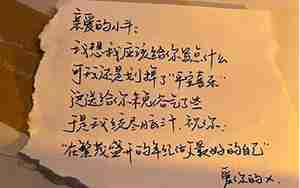 亲爱的小平:
我想我应该给你写点什么
可我还是划掉了"平安喜乐"
送给你未免俗气了些
于是我绞尽脑汁,祝你:
"在繁花盛开的年纪做最好的自己"
爱你的x